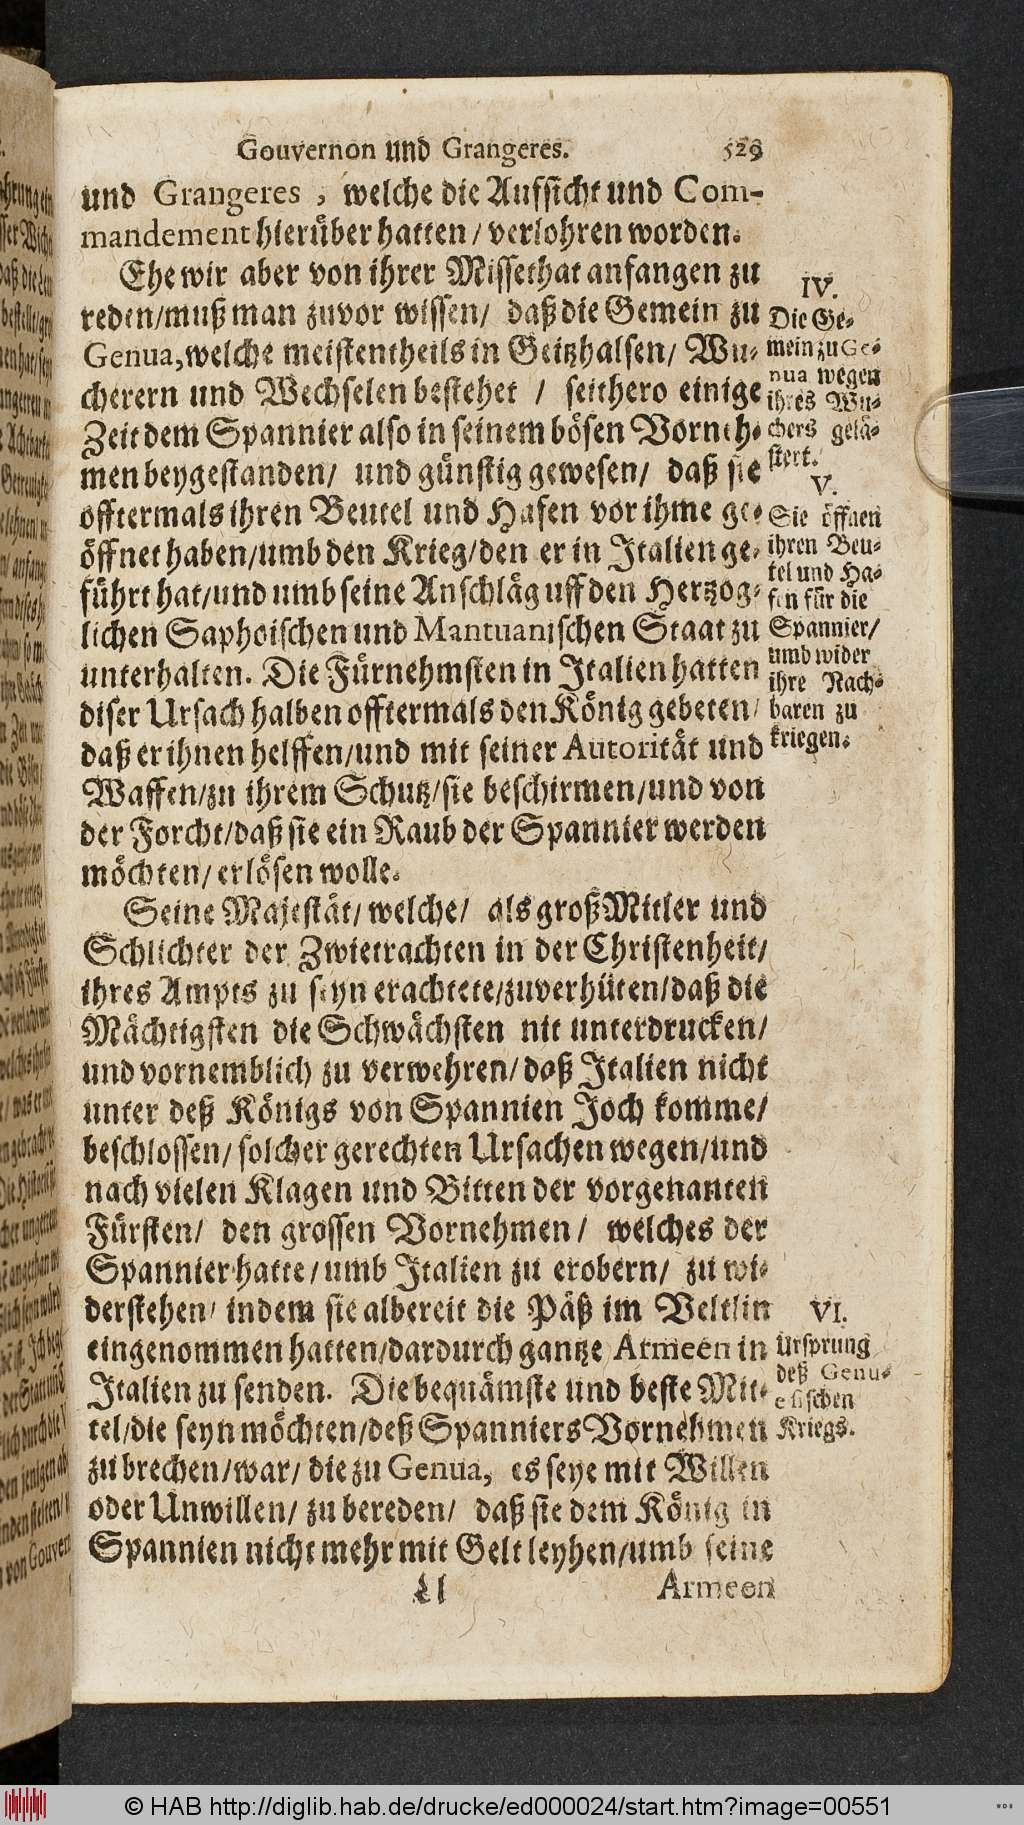 Gouvernon und Grangeres. 529
und Grangeres, welche die Auffsicht und Com-
mandement hierüber hatten/ verlohren worden.
Ehe wir aber von ihrer Missethat anfangen zu
reden/muß man zuvor wissen/ daß die Gemein zu
Genua, welche meistentheils in Geitzhalsen/ Wu-
cherern und Wechselen bestehet / seithero einige
Zeit dem Spannier also in seinem bösen Vorneh-
men beygestanden/ und günstig gewesen/ daß sie
offtermals ihren Beutel und Hafen vor ihme ge-
öffnet haben/umb den Krieg/den er in Italien ge-
führt hat/und umb seine Anschläg uff den Hertzog-
lichen Saphoischen und Mantuanischen Staat zu
unterhalten. Die Fürnehmsten in Italien hatten
diser Ursach halben offtermals den König gebeten/
daß er ihnen helffen/und mit seiner Autorität und
Waffen/zu ihrem Schutz/sie beschirmen/und von
der Forcht/daß sie ein Raub der Spannier werden
möchten/ erlösen wolle.
Seine Majestät/ welche/ als groß Mitler und
Schlichter der Zwietrachten in der Christenheit/
ihres Ampts zu seyn erachtete/zuverhüten/daß die
Mächtigsten die Schwächsten nit unterdrucken/
und vornemblich zu verwehren/ daß Italien nicht
unter deß Königs von Spannien Joch komme/
beschlossen/ solcher gerechten Ursachen wegen/und
nach vielen Klagen und Bitten der vorgenanten
Fürsten/ den grossen Vornehmen/ welches der
Spannier hatte/umb Italien zu erobern/ zu wi-
derstehen/ indem sie albereit die Päß im Veltlin
eingenommen hatten/dardurch gantze Armeen in
Italien zu senden. Die bequämste und beste Mit-
tel/die seyn möchten/deß Spanniers Vornehmen
zu brechen/war/ die zu Genua, es seye mit Willen
oder Unwillen/ zu bereden/ daß sie dem König in
Spannien nicht mehr mit Gelt leyhen/umb seine
Ll Armeen
IV.
Die Ge-
mein zu Ge-
nua wegen
ihres Wu-
chers gelä-
stert.
V.
Sie öffnen
ihren Beu-
tel und Ha-
fen für die
Spannier/
umb wider
ihre Nach-
baren zu
kriegen.
VI.
Ursprung
deß Genu-
esischen
Kriegs.
© HAB http://diglib.hab.de/drucke/ed000024/start.htm?image=00551